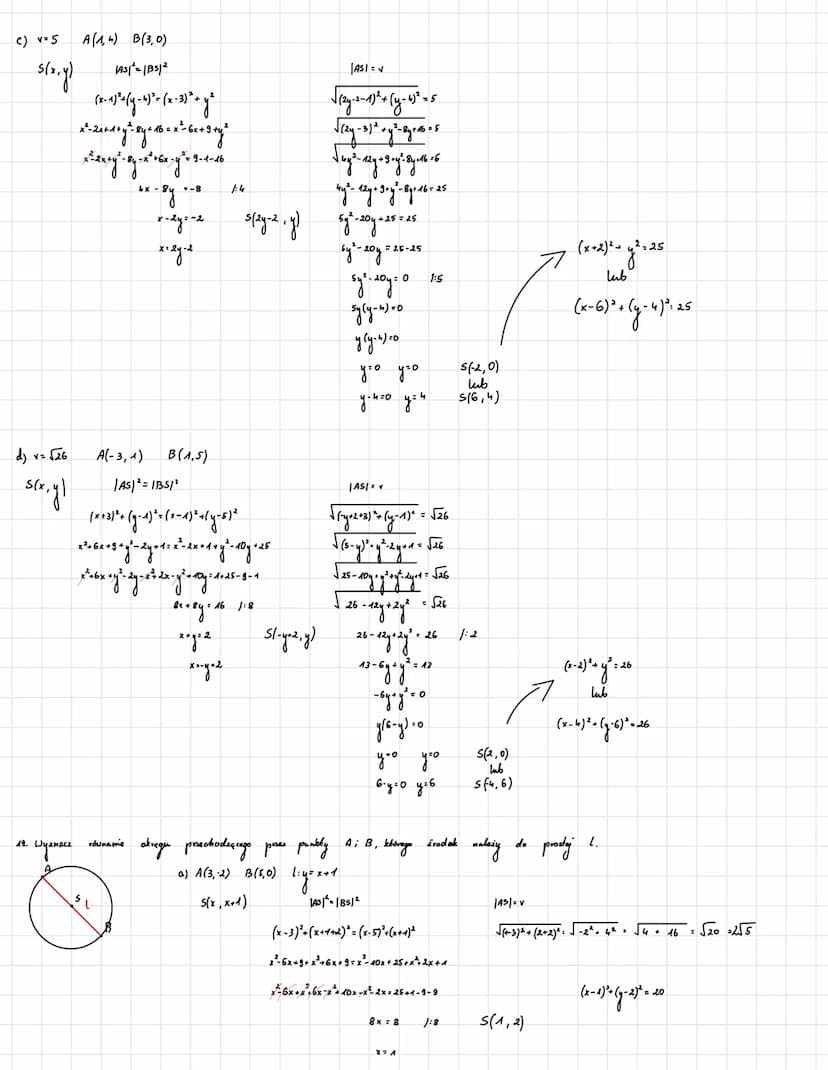 c) r=5 A(1,4) B(3,0)
S(x,y) |AS|²=|BS|²
(x-1)²+(y-4)²=(x-3)²+y²
x²-2x+1+y²-8y+16=x²-6x+9+y²
x²-2x+y²-8y-x²+6x-y²=9-1-16
4x-8y=-8 /:4
x-2y=-2 S(2y-2, y)
x=2y-2
|AS|=r
√(2y-2-1)²+(y-4)²=5
√(2y-3)²+y²-8y+16=5
√4y²-12y+9+y²-8y+16=5
4y²-12y+9+y²-8y+16=25
5y²-20y+25=25
5y²-20y=25-25
5y²-20y=0 /:5
5y(y-4)=0
y(y-4)=0
y=0 y=0 S(-2,0)
lub
y-4=0 y=4 S(6,4)
(x+2)²+y²=25
lub
(x-6)²+(y-4)²=25
d) r=√26 A(-3,1) B(1,5)
S(x,y) |AS|²=|BS|²
(x+3)²+(y-1)²=(x-1)²+(y-5)²
x²+6x+9+y²-2y+1=x²-2x+1+y²-10y+25
x²+6x+y²-2y-x²+2x-y²+10y=1+25-9-1
8x+8y=16 /:8
x+y=2 S(-y+2,y)
x=-y+2
|AS|=r
√(-y+2+3)²+(y-1)²=√26
√(5-y)²+y²-2y+1=√26
√25-10y+y²+y²-2y+1=√26
√26-12y+2y²=√26
26-12y+2y²=26 /:2
13-6y+y²=13
-6y+y²=0
y(6-y)=0
y=0 y=0 S(2,0)
lub
6-y=0 y=6 S(-4,6)
(x-2)²+y²=26
lub
(x-4)²+(y-6)²=26
19. Wyznacz równanie okręgu przechodzącego przez punkty A i B, którego środek należy do prostej l.
A
S
l
B
a) A(3,-2) B(5,0) l:y=x+1
S(x,x+1) |AS|²=|BS|²
(x-3)²+(x+1+2)²=(x-5)²+(x+1)²
x²-6x+9+x²+6x+9=x²-10x+25+x²+2x+1
x²-6x+x²+6x-x²+10x-x²-2x=25+1-9-9
8x=8 /:8 S(1,2)
x=1
|AS|=r
√(1-3)²+(2+2)²=√-2²+4²=√4+16=√20=2√5
(x-1)²+(y-2)²=20